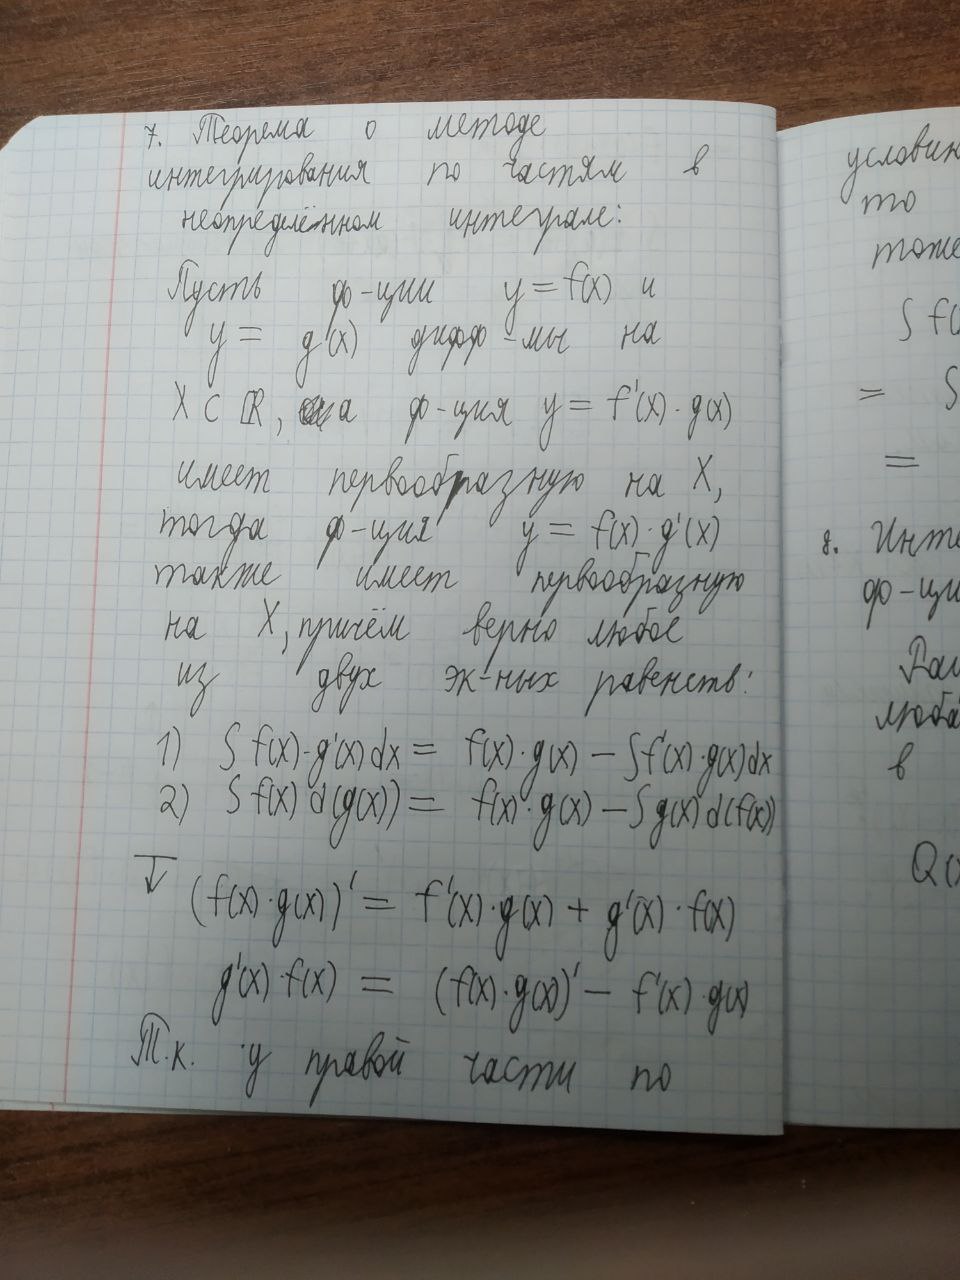 7. Теорема о методе
интегрирования по частям в
неопределённом интеграле:
Пусть ф-ции y = f(x) и
y = g'(x) дифф-мы на
X ⊂ ℝ, а ф-ция y = f'(x) · g(x)
имеет первообразную на X,
тогда ф-ция y = f(x) · g'(x)
также имеет первообразную
на X, причём верно любое
из двух эк-ных равенств:
1) ∫ f(x) · g'(x) dx = f(x) · g(x) − ∫ f'(x) · g(x) dx
2) ∫ f(x) d(g(x)) = f(x) · g(x) − ∫ g(x) d(f(x))
(f(x) · g(x))' = f'(x) · g(x) + g'(x) · f(x)
g'(x) · f(x) = (f(x) · g(x))' − f'(x) · g(x)
Т.к. у правой части по
то
тоже
∫ f(
=
=
8.
ф-ци
в
Q(